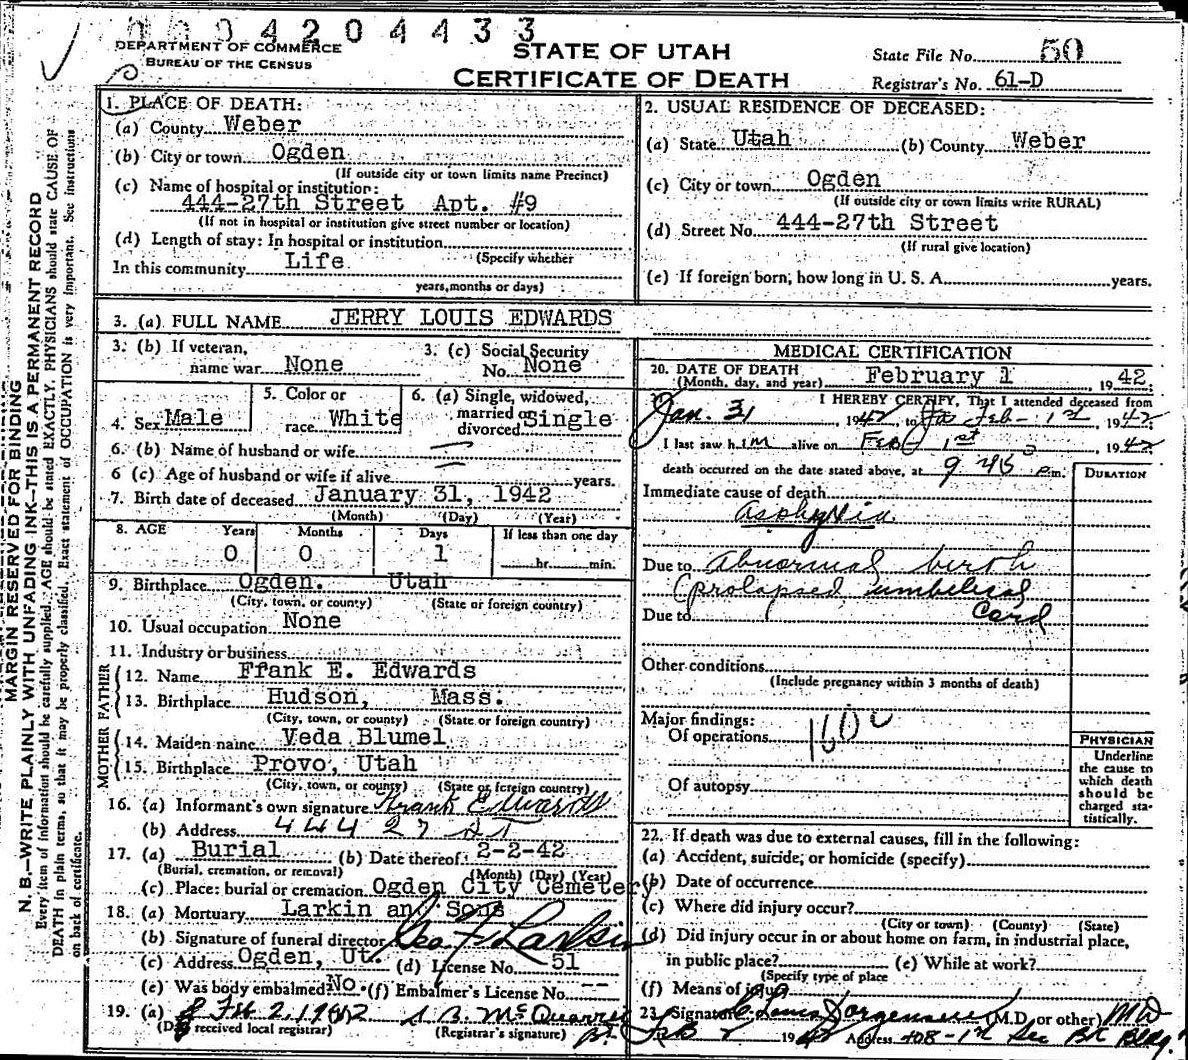 0004204433
DEPARTMENT OF COMMERCE
BUREAU OF THE CENSUS
STATE OF UTAH
CERTIFICATE OF DEATH
State File No. 50
Registrar's No. 61-D
MARGIN RESERVED FOR BINDING
N. B.—WRITE PLAINLY WITH UNFADING INK—THIS IS A PERMANENT RECORD
Every item of information should be carefully supplied. AGE should be stated EXACTLY. PHYSICIANS should state CAUSE OF
DEATH in plain terms, so that it may be properly classified. Exact statement of OCCUPATION is very important. See instructions
on back of certificate.
1. PLACE OF DEATH:
(a) County Weber
(b) City or town Ogden
(If outside city or town limits name Precinct)
(c) Name of hospital or institution:
444-27th Street Apt. #9
(If not in hospital or institution give street number or location)
(d) Length of stay: In hospital or institution
(Specify whether
In this community Life
years, months or days)
2. USUAL RESIDENCE OF DECEASED:
(a) State Utah (b) County Weber
(c) City or town Ogden
(If outside city or town limits write RURAL)
(d) Street No. 444-27th Street
(If rural give location)
(e) If foreign born, how long in U. S. A. years.
3. (a) FULL NAME JERRY LOUIS EDWARDS
3. (b) If veteran, name war None
3. (c) Social Security No. None
4. Sex Male
5. Color or race White
6. (a) Single, widowed, married or divorced Single
6. (b) Name of husband or wife
6 (c) Age of husband or wife if alive years.
7. Birth date of deceased January 31, 1942
(Month) (Day) (Year)
8. AGE Years Months Days If less than one day
0 0 1 hr. min.
9. Birthplace Ogden. Utah
(City, town, or county) (State or foreign country)
10. Usual occupation None
11. Industry or business
FATHER
12. Name Frank E. Edwards
13. Birthplace Hudson, Mass.
(City, town, or county) (State or foreign country)
MOTHER
14. Maiden name Veda Blumel
15. Birthplace Provo, Utah
(City, town, or county) (State or foreign country)
16. (a) Informant's own signature Frank Edwards
(b) Address 444 27 ST
17. (a) Burial (b) Date thereof: 2-2-42
(Burial, cremation, or removal) (Month) (Day) (Year)
(c) Place: burial or cremation Ogden City Cemetery
18. (a) Mortuary Larkin and Sons
(b) Signature of funeral director Geo. F. Larkin
(c) Address Ogden, Ut. (d) License No. 51
(e) Was body embalmed No. (f) Embalmer's License No. --
19. (a) Feb 2, 1942
(Date received local registrar) (Registrar's signature)
MEDICAL CERTIFICATION
20. DATE OF DEATH
(Month, day, and year) February 1, 1942.
I HEREBY CERTIFY, That I attended deceased from
Jan. 31, 1942, to Feb - 1st, 1942
I last saw him alive on Feb - 1st, 1942
death occurred on the date stated above, at 9 45 p.m.
DURATION
Immediate cause of death
asphyxia
Due to abnormal birth
(prolapsed umbilical
Due to cord
Other conditions
(Include pregnancy within 3 months of death)
Major findings:
Of operations
Of autopsy
PHYSICIAN
Underline
the cause to
which death
should be
charged sta-
tistically.
22. If death was due to external causes, fill in the following:
(a) Accident, suicide, or homicide (specify)
(b) Date of occurrence
(c) Where did injury occur?
(City or town) (County) (State)
(d) Did injury occur in or about home on farm, in industrial place,
in public place? (e) While at work?
(Specify type of place
(f) Means of injury
23. Signature Louis Jorgensen (M.D. or other) MD
Feb 2 1942 Address 408-1st Sec Bk Bldg.